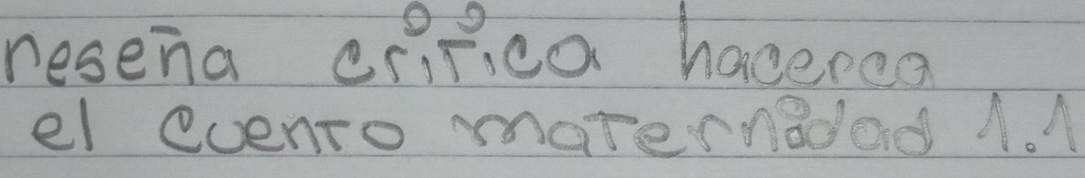 reseña critica hacerca
el cuento maternidad 1.1